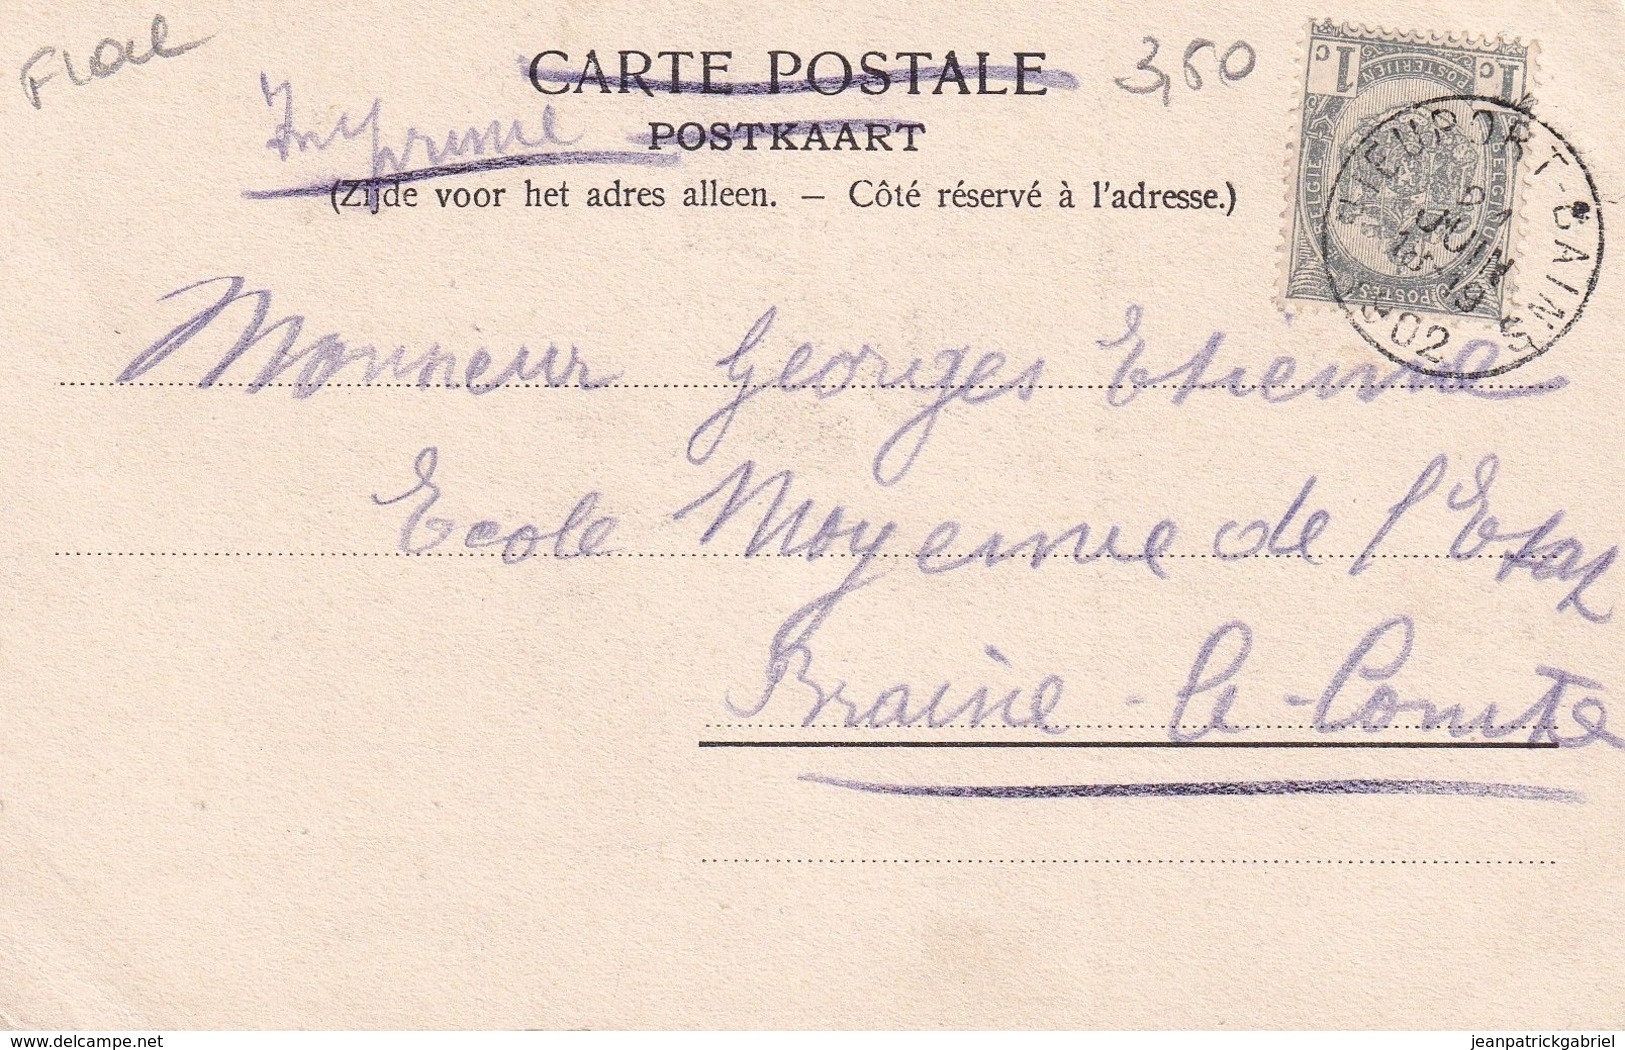 Flal
CARTE POSTALE
3,50
Imprime
POSTKAART
(Zijde voor het adres alleen. — Côté réservé à l'adresse.)
1c 1c
POSTERIJEN
BELGIE BELGIQUE
POSTES
NIEUPORT-BAINS
21
JUIN
18-19
1902
Monsieur Georges Etienne
Ecole Moyenne de l'Etat
Braine-le-Comte
delcampe.net
jeanpatrickgabriel